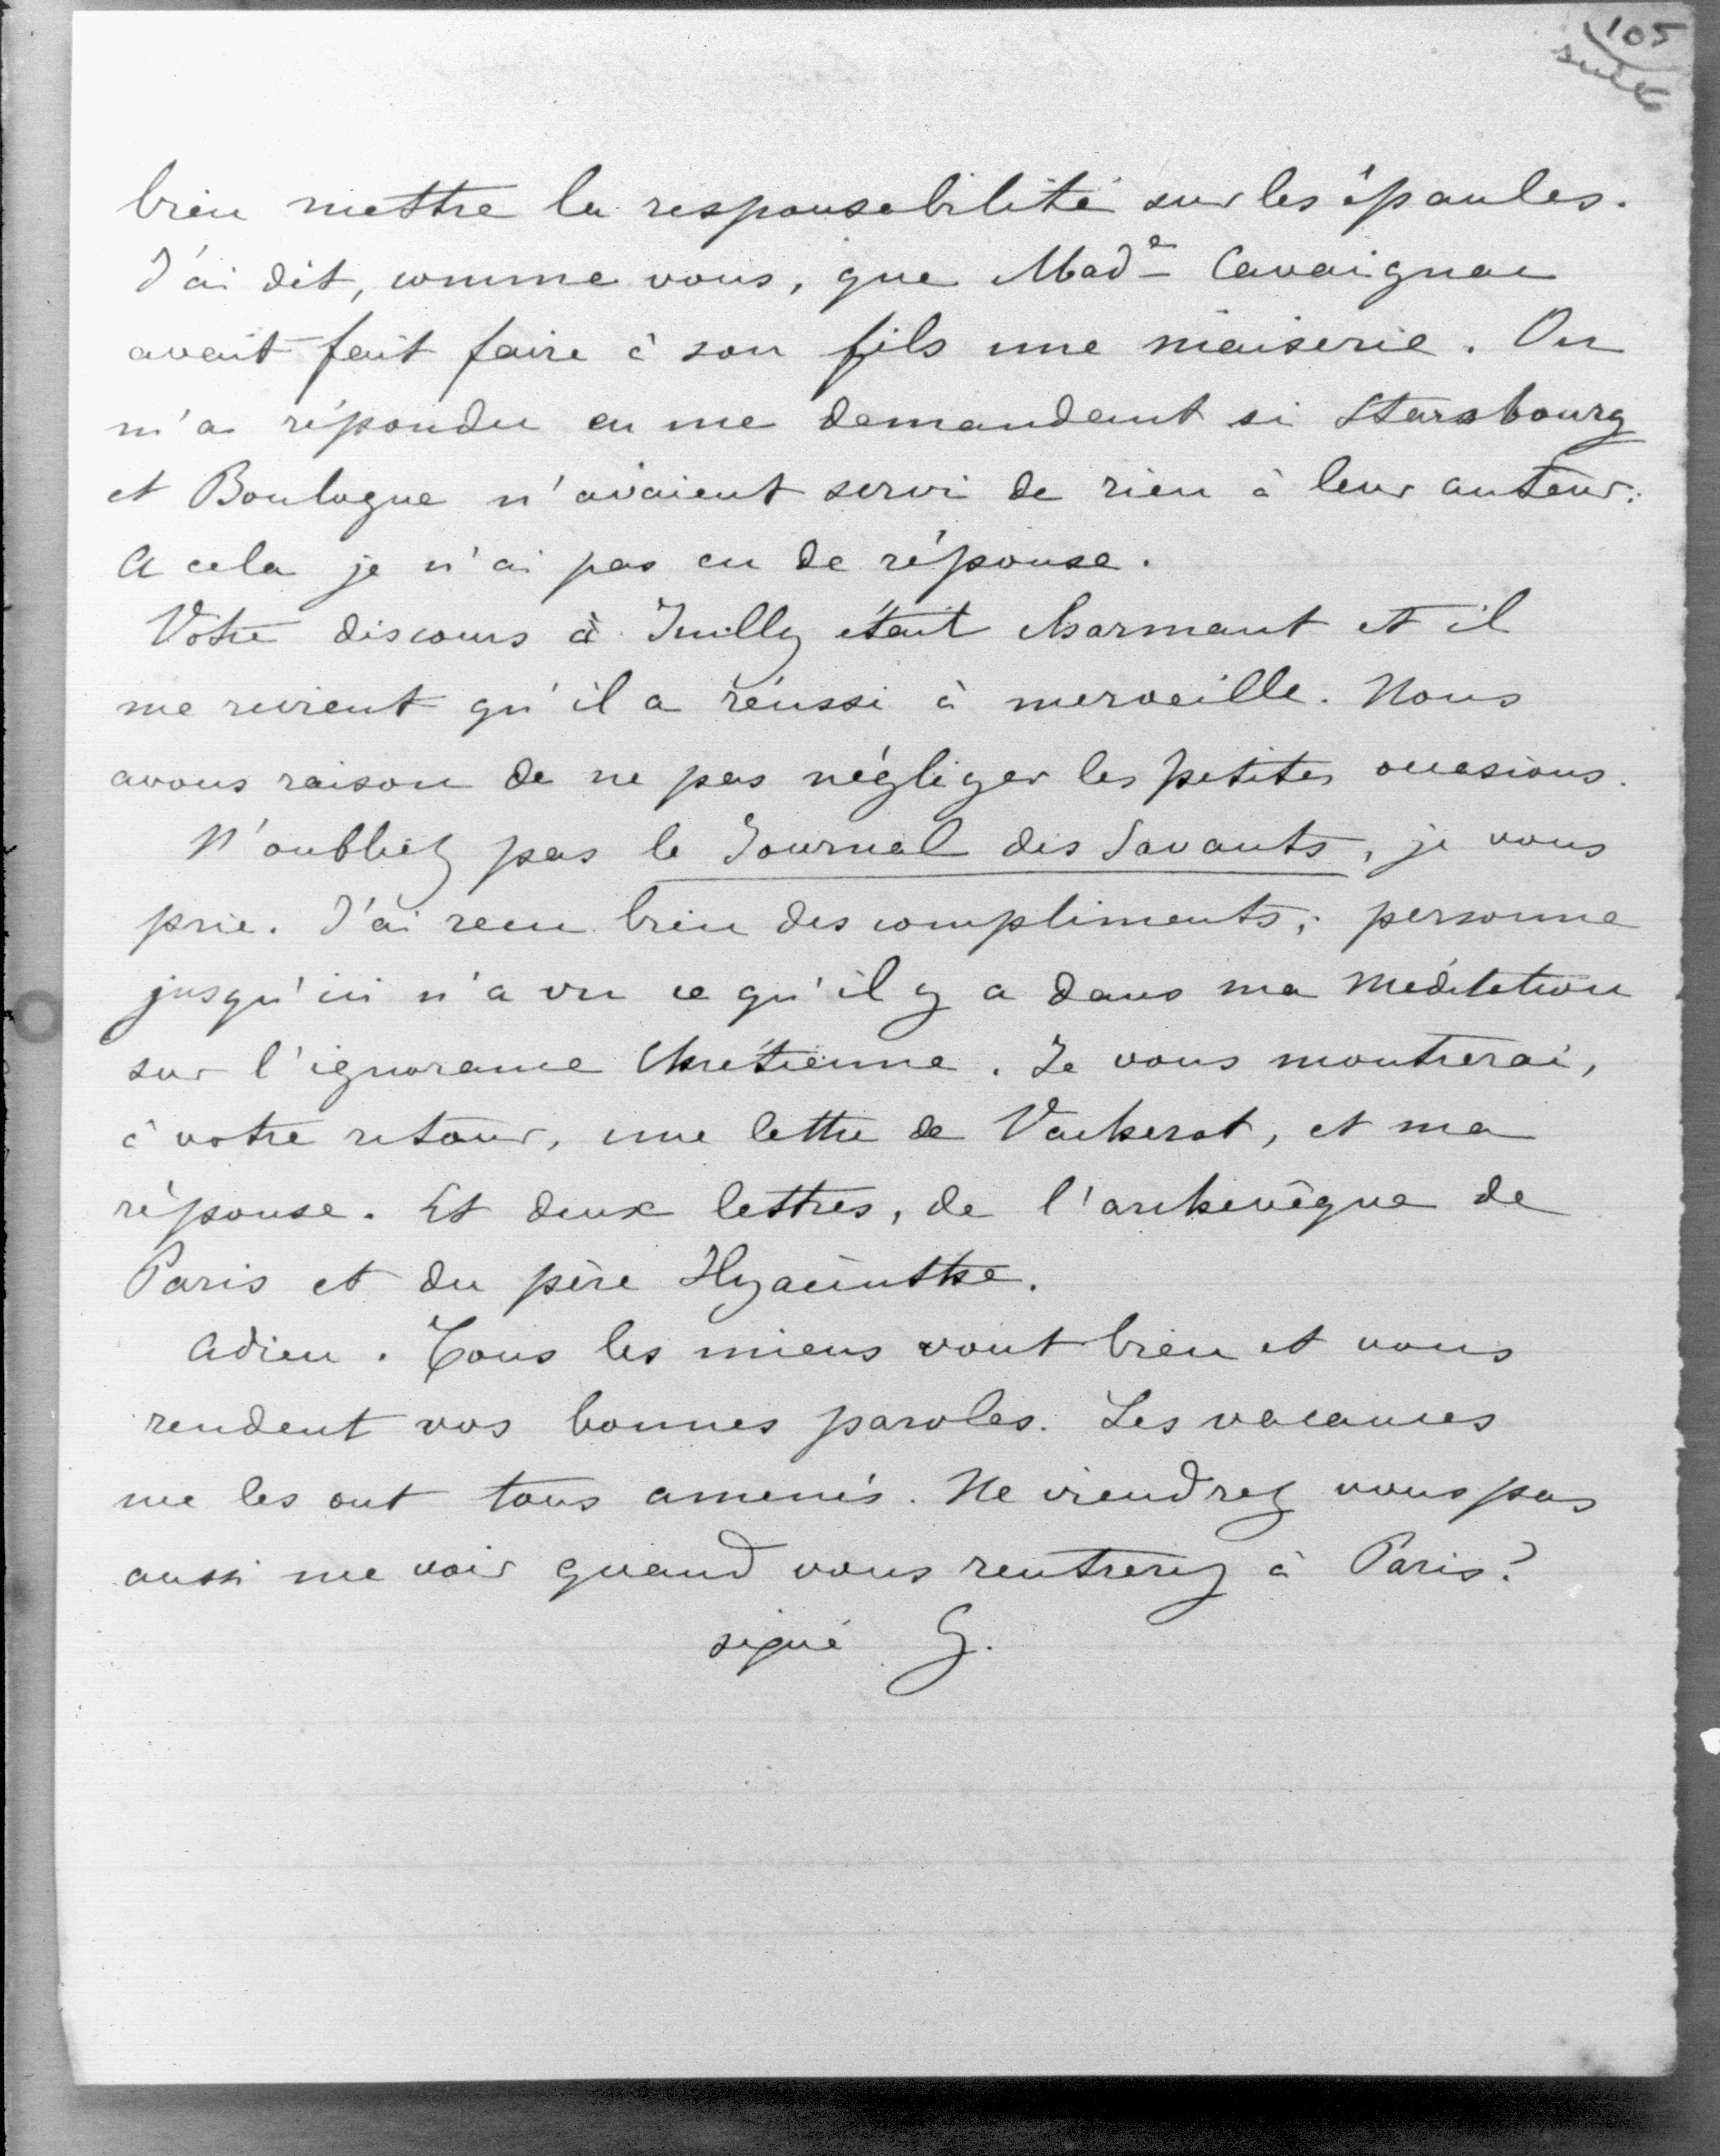 105
suite
bien mettre la responsabilité sur les épaules.
J'ai dit, comme vous, que Made Cavaignac
avait fait faire à son fils une niaiserie. On
m'a répondu en me demandant si Starsbourg
et Boulogne n'avaient servi de rien à leur auteur.
A cela je n'ai pas eu de réponse.
Votre discours à Juilly était charmant et il
me revient qu'il a réussi à merveille. Nous
avons raison de ne pas négliger les petites occasions.
N'oubliez pas le Journal des Savants, je vous
prie. J'ai reçu bien des compliments; personne
jusqu'ici n'a vu ce qu'il y a dans ma Méditation
sur l'ignorance Chrétienne. Je vous montrerai,
à votre retour, une lettre de Vacherot, et ma
réponse. Et deux lettres, de l'archevêque de
Paris et du père Hyacinthe.
Adieu. Tous les miens vont bien et vous
rendent vos bonnes paroles. Les vacances
me les ont tous amenés. Ne viendrez vous pas
aussi me voir quand vous rentrerez à Paris?
signé G.